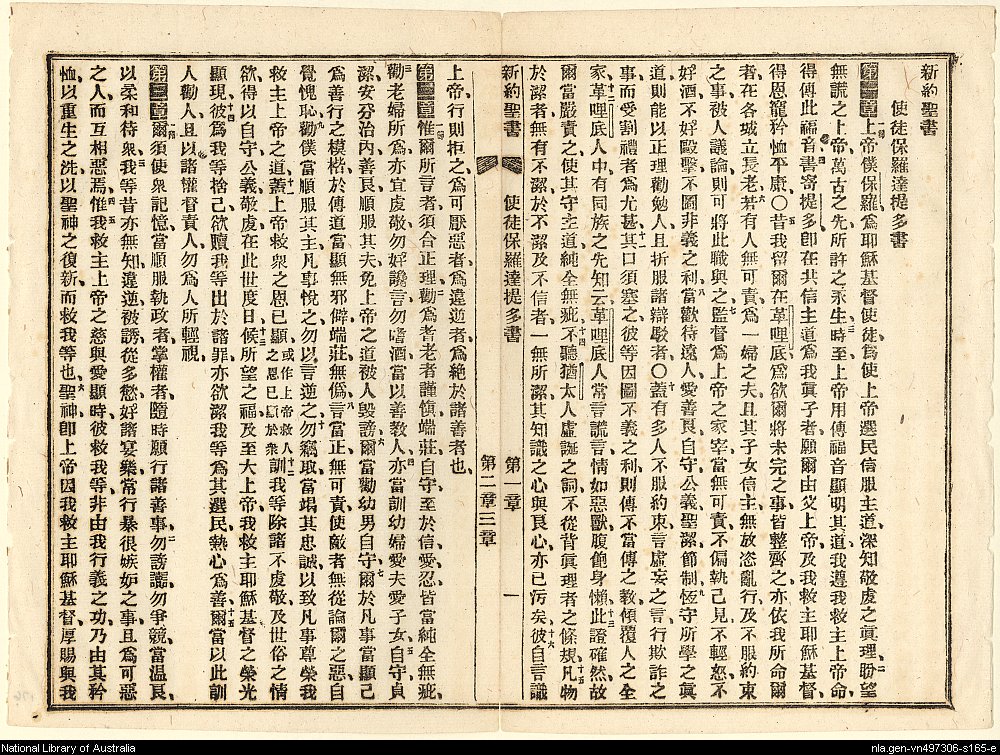 新約聖書
使徒保羅達提多書
第一章 一節上帝僕保羅爲耶穌基督使徒爲使上帝選民信服主道深知敬虔之眞理二盼望
無謊之上帝萬古之先所許之永生三時至上帝用傳福音顯明其道我遵我救主上帝命
得傳此福音四書寄提多卽在共信主道爲我眞子者願爾由父上帝及我救主耶穌基督
得恩寵矜恤平康〇五昔我留爾在革哩底爲欲爾將未完之事皆整齊之亦依我所命爾
者在各城立長老六若有人無可責爲一婦之夫且其子女信主無放恣亂行及不服約束
之事被人議論則可將此職與之七監督爲上帝之家宰當無可責不偏執己見不輕怒不
好酒不好毆擊不圖非義之利八當歡待遠人愛善良自守公義聖潔節制九恆守所學之眞
道則能以正理勸勉人且折服諸辯駁者〇十蓋有多人不服約束言虛妄之言行欺詐之
事而受割禮者爲尤甚十一其口須塞之彼等因圖不義之利則傳不當傳之教傾覆人之全
家十二革哩底人中有同族之先知云革哩底人常言謊言情如惡獸腹飽身懶十三此證確然故
爾當嚴責之使其守主道純全無疵十四不聽猶太人虛誕之詞不從背眞理者之條規十五凡物
於潔者無有不潔於不潔及不信者一無所潔其知識之心與良心亦已污矣十六彼自言識
新約聖書 使徒保羅達提多書 第一章 一
第二章三章
上帝行則拒之爲可厭惡者爲違逆者爲絕於諸善者也
第二章 一節惟爾所言者須合正理二勸爲耆老者謹愼端莊自守至於信愛忍皆當純全無疵
三勸老婦所爲亦宜虔敬勿好讒言勿嗜酒當以善教人四亦當訓幼婦愛夫愛子女五自守貞
潔安分治內善良順服其夫免上帝之道被人毀謗六爾當勸幼男自守七爾於凡事當顯己
爲善行之模楷於傳道當顯無邪僻端莊無僞八言當正無可責使敵者無從論爾之惡自
覺愧恥九勸僕當順服其主凡事悅之勿以言逆之十勿竊取當竭其忠誠以致凡事尊榮我
救主上帝之道十一蓋上帝救衆之恩已顯或作上帝救人之恩已顯於衆十二訓我等除諸不虔敬及世俗之情
欲得以自守公義敬虔在此世度日十三候所望之福及至大上帝我救主耶穌基督之榮光
顯現十四彼爲我等捨己欲贖我等出於諸罪亦欲潔我等爲其選民熱心爲善十五爾當以此訓
人勸人且以諸權督責人勿爲人所輕視
第三章 一節爾須使衆記憶當順服執政者掌權者隨時願行諸善事二勿謗讟勿爭競當溫良
以柔和待衆三我等昔亦無知違逆被誘從多慾好諸宴樂常行暴很嫉妒之事且爲可惡
之人而互相惡焉四惟我救主上帝之慈與愛顯時五彼救我等非由我行義之功乃由其矜
恤以重生之洗以聖神之復新而救我等也六聖神卽上帝因我救主耶穌基督厚賜與我
National Library of Australia
nla.gen-vn497306-s165-e